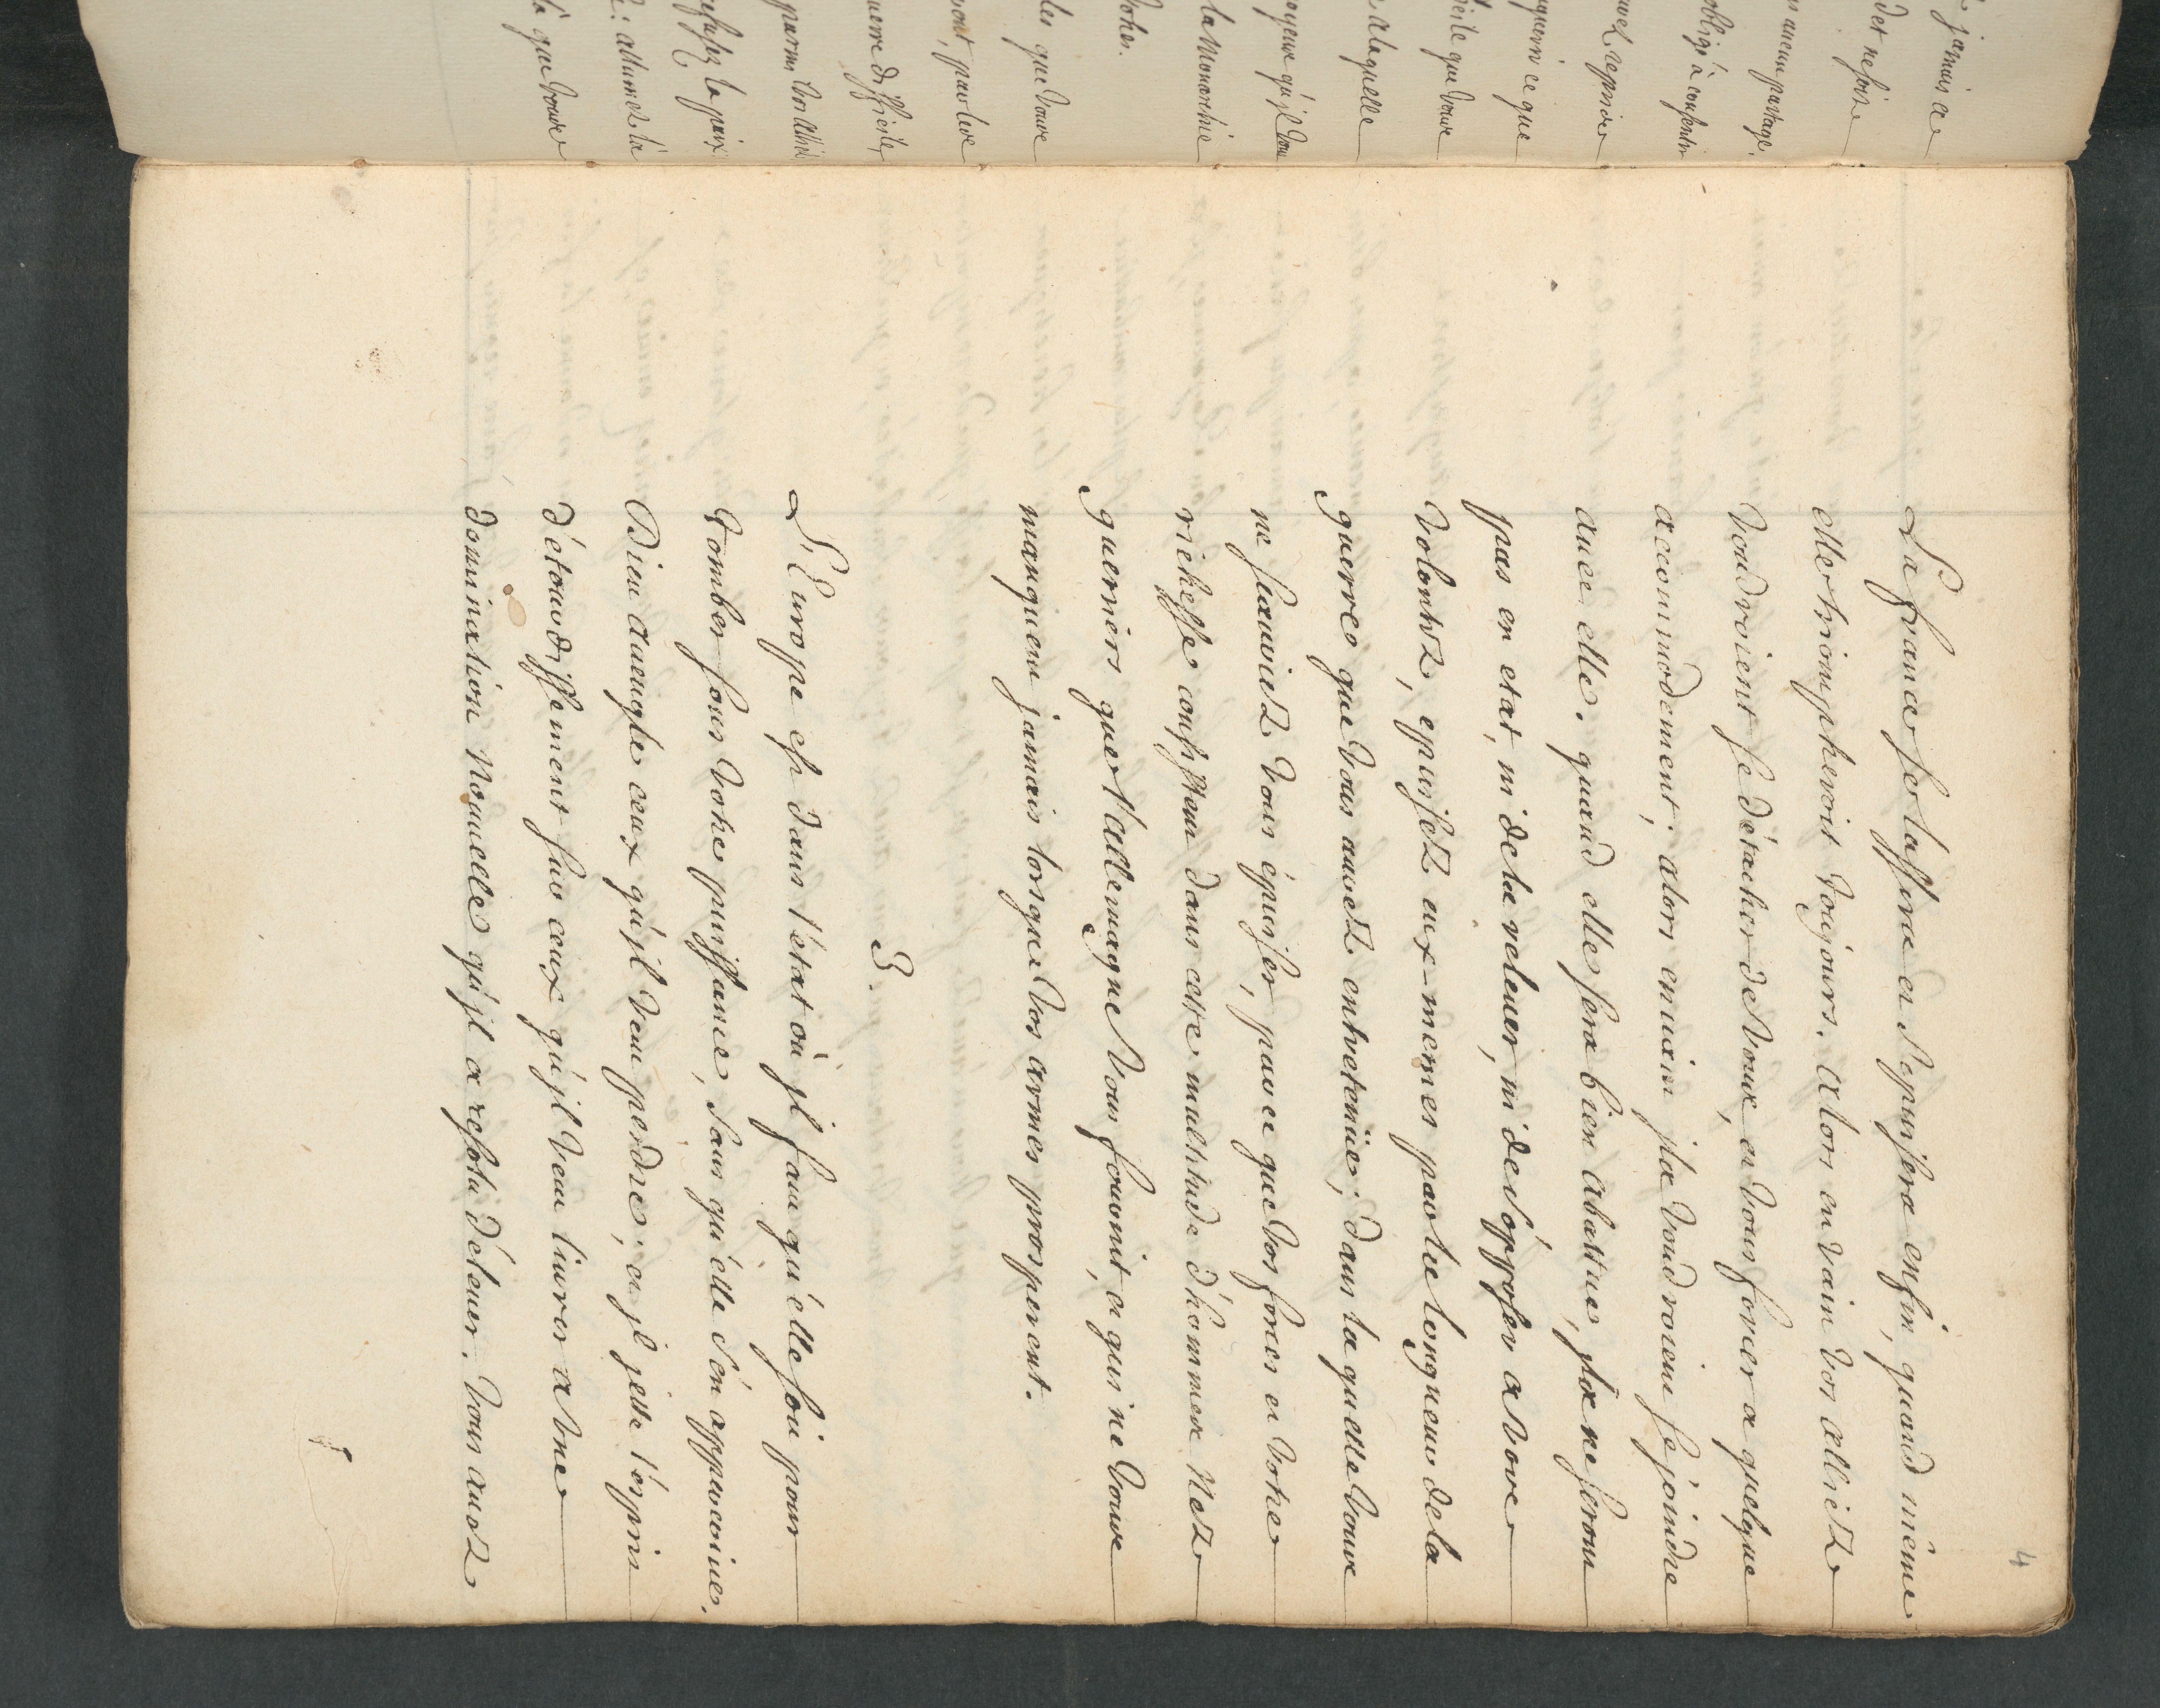 4
La france se lassera et s'epuisera enfin, quand même
elle triompheroit toûjours. alors en vain vos alliéz
voudroient se détacher de vous, et vous forcer a quelque
accommodement; alors envain jls voudroient se joindre
auec elle. quand elle sera bien abattue, jls ne seront
pas en etat, ni de la releuer, ni de s'opposer a vos
volontéz, epuiséz eux-mêmes par la longueur de la
guerre que vous auéz entretenüe; dans laquelle vous
ne scauriéz vous épuiser, parce que vos forces et votre
richesse consistent dans cette multitude d'hommes Nez
guerriers que l'allemagne vous fournit, et qui ne vous
manquent jamais lorsque vos armes prosperent.
3.
L'Europe est dans l'état où jl faut qu'elle soit pour
tomber sous votre puissance, sans qu'elle s'en apperçoive.
Dieu aueugle ceux qu'jl veut perdre; et jl jette l'esprit
d'étourdissement sur ceux qu'jl veut liurer a vne
domination Nouuelle qu'jl a resolu d'éleuer. Vous auez
jamais ce
aucun partage.
obligé à consentir
reprise
ce que
que vous
a laquelle
qu'jl vous
la Monarchie
votre.
les que vous
par les
guerre difficile,
parmi vos alliéz
la paix
: allumez la
là que vous